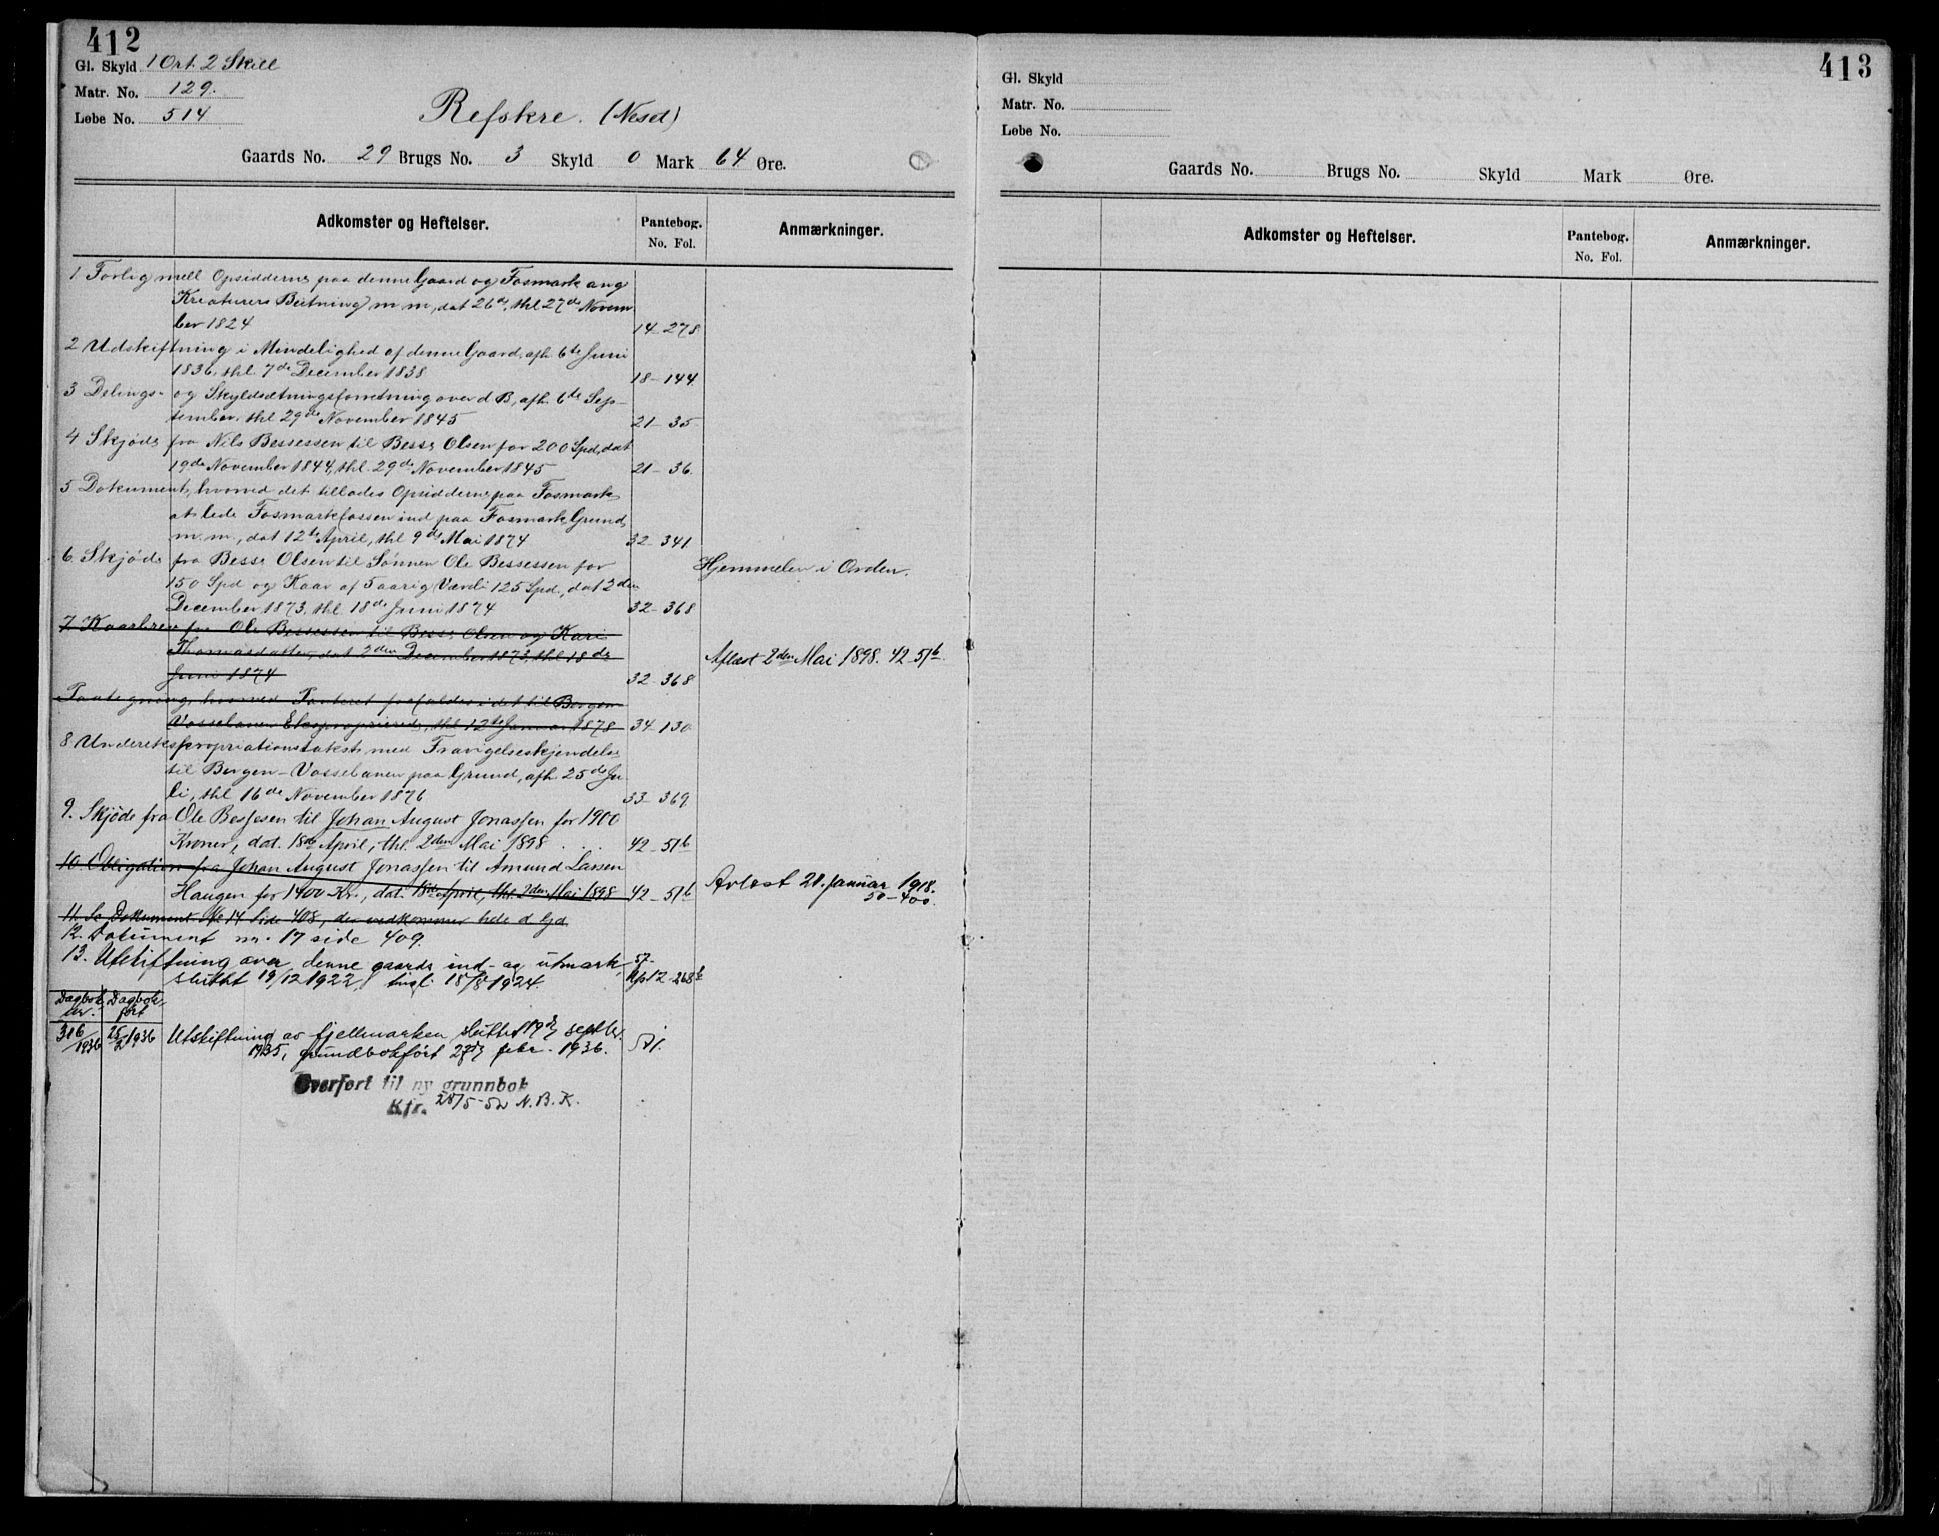 412
Gl. Skyld 1 Ort. 2 Skill
Matr. No. 129.
Løbe No. 514
Refskre. (Neset)
Gaards No. 29 Brugs No. 3 Skyld 0 Mark 64 Øre.
Adkomster og Heftelser.
Pantebog.
No. Fol.
Anmærkninger.
1 Forlig mell Opsidderne paa denne Gaard og Fosmark ang
Kreaturers Beitning m m, dat 26de, thl 27de Novem
ber 1824 14-278
2 Udskiftning i Mindelighed af denne Gaard, afh. 6te Juni
1836, thl. 7de December 1838 18-144
3 Delings- og Skyldsætningsforretning over d B, afh. 6te Sep-
tember, thl 29de November 1845 21-35
4 Skjøde fra Nils Bessessen til Besse Olsen for 200 Spd, dat
19de November 1844, thl. 29de November 1845 21-36.
5 Dokument, hvorved det tillades Opsidderne paa Fosmark
at lede Fosmarkfossen ind paa Fosmarks Grund
m. m., dat 12te April, thl 9de Mai 1874 32-341
6. Skjøde fra Besse Olsen til Sønnen Ole Bessessen for
150 Spd og Kaar af 5 aarig Værdi 125 Spd., dat 2den
December 1873, thl. 18de Juni 1874 32-368
Hjemmelen i Orden.
7 Kaarbrev fra Ole Bessessen til Besse Olsen og Kari
Thomasdatter, dat 2den December 1873, thl 18de
Juni 1874 32-368
Aflæst 2den Mai 1898. 42-51b
Paategning, hvorved Panteret frafaldes i det til Bergen
Vossebanen Eksproprierede, thl 12te Januar 1878 34-130
8 Underekspropriationstakst med Fravigelseskjendelse
til Bergen-Vossebanen paa Grund, afh 25de Ju
li, thl 16de November 1876 33-369
9. Skjøde fra Ole Bessesen til Johan August Jonassen for 1900
Kroner, dat. 18de April, thl. 2den Mai 1898 . . . 42-51b
10. Obligation fra Johan August Jonassen til Amund Larsen
Haugen for 1400 Kr., dat. 18de April, thl. 2den Mai 1898 42-51b
Avlæst 21. januar 1918.
50-400.
11. Se Dokument No 14 Side 408, der vedkommer hele d Gd
12. Dokument nr. 17 side 409.
13. Utskiftning over denne gaards ind- og utmark, 57-
sluttet 19/12 1922, tingl. 18/8 1924. Up 12-268b
Dagbok Dagbok-
nr. ført
316/1936 25/2 1936 Utskiftning av fjellmarken, sluttet 19de septbr.
1935, grundbokført 25de febr. 1936.
Overført til ny grunnbok
Kfr. 28/5-52 N.B.K.
413
Gl. Skyld
Matr. No.
Løbe No.
Gaards No. Brugs No. Skyld Mark Øre.
Adkomster og Heftelser.
Pantebog.
No. Fol.
Anmærkninger.